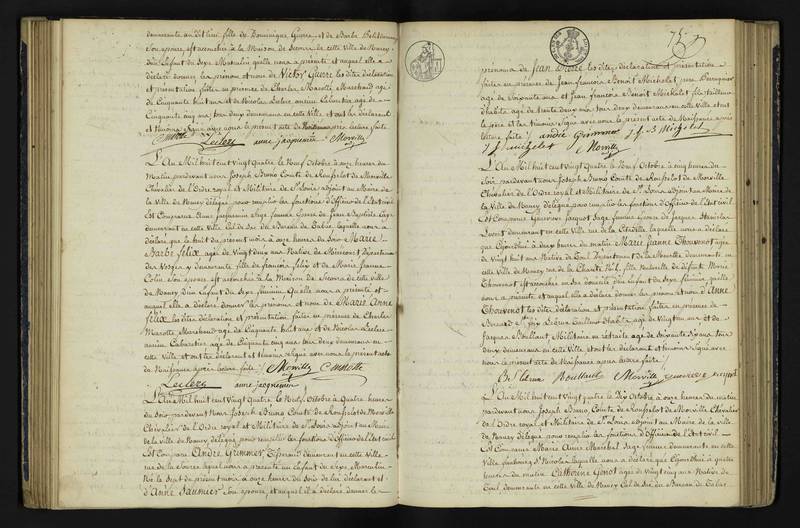 demeurante audit lieu fille de Dominique Guerre et de Barbe
Son epouse, est accouchée à la Maison de Secours de cette Ville de Nancy
d'un Enfant du Sexe Masculin quelle nous a présenté et auquel elle a
déclaré donner les prénom et nom de Victor Guerre les dites déclaration
et présentation faites en présence de Charles Marotte Marchand agé de
Cinquante huit ans et de Nicolas Leclerc ancien Cabaretier agé de
Cinquante cinq ans tous deux demeurans en cette Ville, et ont les déclarant
et témoins Signé avec nous le présent acte de Naissance après lecture faite
Leclerc anne jacquemin Morville
L'An Mil huit cent Vingt Quatre le Neuf Octobre à onze heures du
Matin pardevant nous Joseph Bruno Comte de Rousselot de Morville
Chevalier de l'Ordre royal et Militaire de St Louis adjoint au Maire de
la Ville de Nancy délégué pour remplir les fonctions d'Officier de l'état civil
Est Comparue Anne Jacquemin Sage femme Epouse de Jean Baptiste
demeurant en cette Ville Cul de Sac du Bureau de Tabac, laquelle nous a
déclaré que le huit du présent mois à onze heures du Soir Marie
Barbe Felix agée de Vingt deux ans Native de Mirecourt Département
des Vosges y demeurante fille de françois felix et de Marie Jeanne
Colin Son epouse est accouchée à la Maison de Secours de cette ville
de Nancy d'un Enfant du Sexe féminin Quelle nous a présenté et
auquel elle a déclaré donner les prénoms et nom de Marie Anne
félix les dites Déclaration et présentation faites en présence de Charles
Marotte Marchand agé de Cinquante huit ans et de Nicolas Leclerc
ancien Cabaretier agé de Cinquante cinq ans tous deux demeurans en
cette Ville et ont les déclarant et témoins signé avec nous le présent acte
de Naissance après lecture faite / Morville Marotte
Leclerc anne jacquemin
L'An Mil huit cent Vingt Quatre le Neuf Octobre à Quatre heures
du Soir pardevant Nous Joseph Bruno Comte de Rousselot de Morville
Chevalier de l'Ordre royal et Militaire de St Louis adjoint au Maire
de la ville de Nancy, délégué pour remplir les fonctions d'Officier de l'état civil
Est Comparu André Grimmer Tisserand demeurant en cette Ville
rue de lequel nous a présenté un Enfant du Sexe Masculin
Né le Sept du présent mois à onze heures du Soir de lui déclarant et
d'Anne Saunier Son epouse, et auquel il a déclaré donner les
75
prénoms de Jean Pierre les dites déclaration et présentation
faites en présence de Jean françois Benoit Michelet pere
agé de Soixante ans et Jean françois Benoit Michelet fils tailleur
d'habits agé de trente deux ans tous deux demeurans en cette Ville et ont
le père et les témoins Signé avec nous le présent acte de Naissance après
lecture faite / andré Grimmer J f B Michelet
J f michelet Morville
L'An Mil huit cent Vingt Quatre le Neuf Octobre à cinq heures du
Soir pardevant nous Joseph Bruno Comte de Rousselot de Morville
Chevalier de l'Ordre royal et Militaire de St Louis adjoint au Maire de
la Ville de Nancy délégué pour remplir les fonctions d'Officier de l'état civil
Est Comparue Geneviève Jacquot Sage femme Epouse de Jacques Stanislas
demeurant en cette Ville rue de la Citadelle laquelle nous a déclaré
que Cejourd'hui à deux heures du matin Marie Jeanne Thouvenot agée
de Vingt huit ans Native de Toul Département de la Meurthe demeurante en
cette Ville de Nancy rue de la Charité fille Naturelle de défunte Marie
Thouvenot est accouchée en son domicile d'un Enfant du Sexe féminin quelle
nous a présenté et auquel elle a déclaré donner les prénom et nom d'Anne
Thouvenot les dites déclaration et présentation faites en présence de
Bernard tailleur d'habits agé de Vingt un ans et de
Jacques Boullaut, Militaire en retraite agé de Soixante Six ans tous
deux demeurans en cette Ville, et ont les déclarant et témoins Signé avec
nous le présent acte de Naissance après lecture faite /
Boullaut Morville genevieve jacquot
L'An Mil huit cent Vingt Quatre le Dix Octobre à onze heures du matin
pardevant nous Joseph Bruno Comte de Rousselot de Morville Chevalier
de l'Ordre royal et Militaire de St Louis adjoint au Maire de la ville
de Nancy délégué pour remplir les fonctions d'Officier de l'Etat civil
Est Comparue Marie Anne Marchal Sage femme demeurante en cette
Ville faubourg St Nicolas laquelle nous a déclaré que Cejourd'hui à quatre
heures du matin Catherine Gonot agée de vingt cinq ans Native de
Toul, demeurante en cette ville de Nancy Cul de Sac du Bureau de Tabac